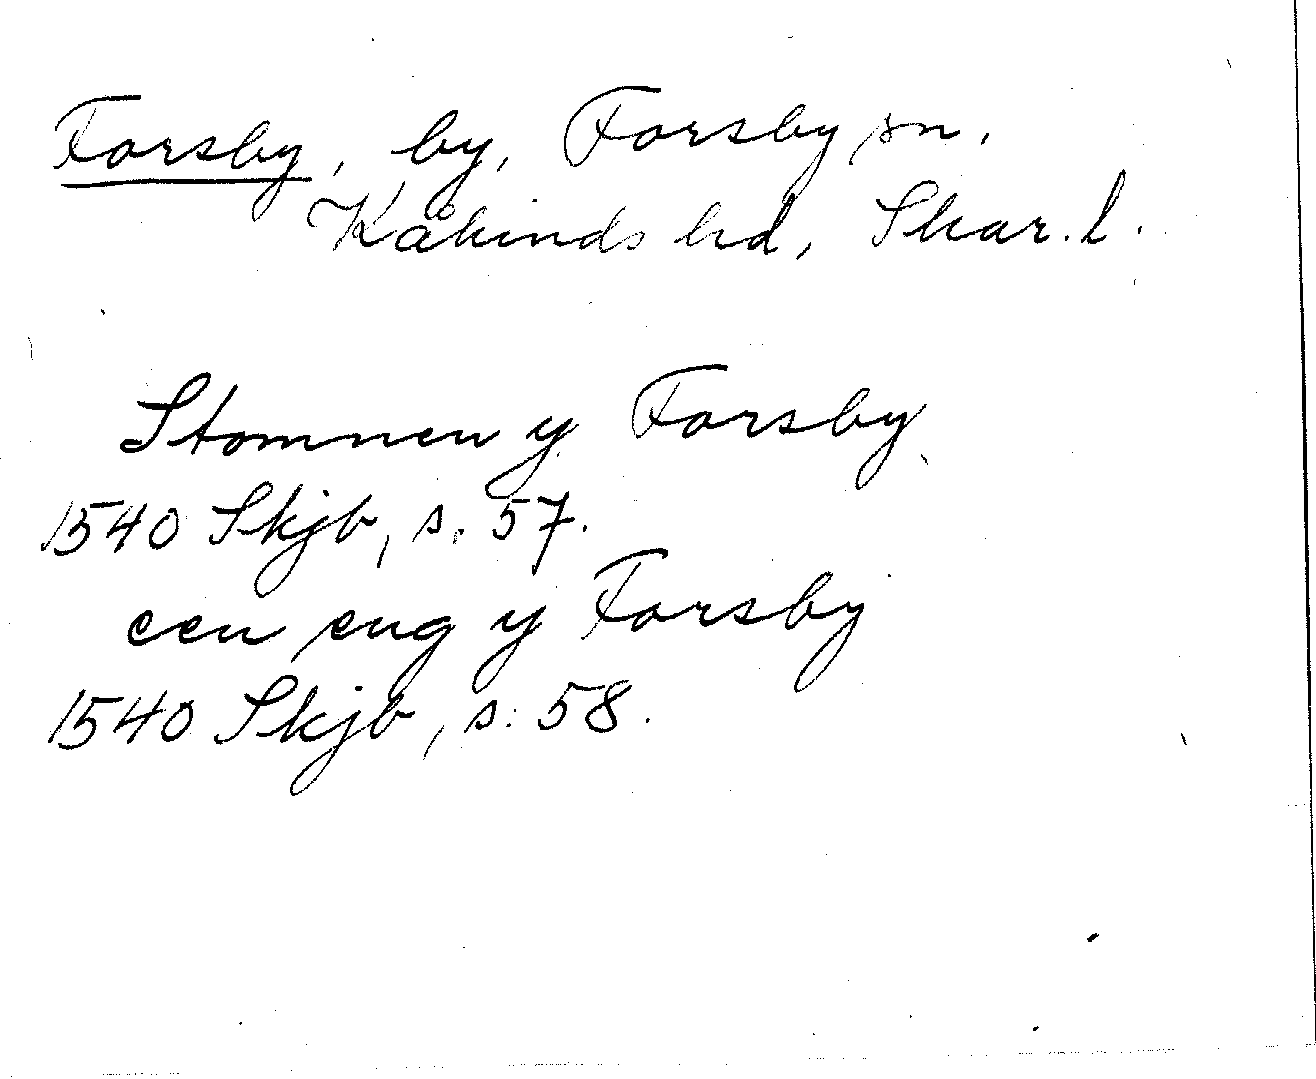 Forsby, by, Forsby sn.
Kåkinds hd, Skar. l.
Stommen y Forsby
1540 Skjb, s. 57.
een eng y Forsby
1540 Skjb, s. 58.